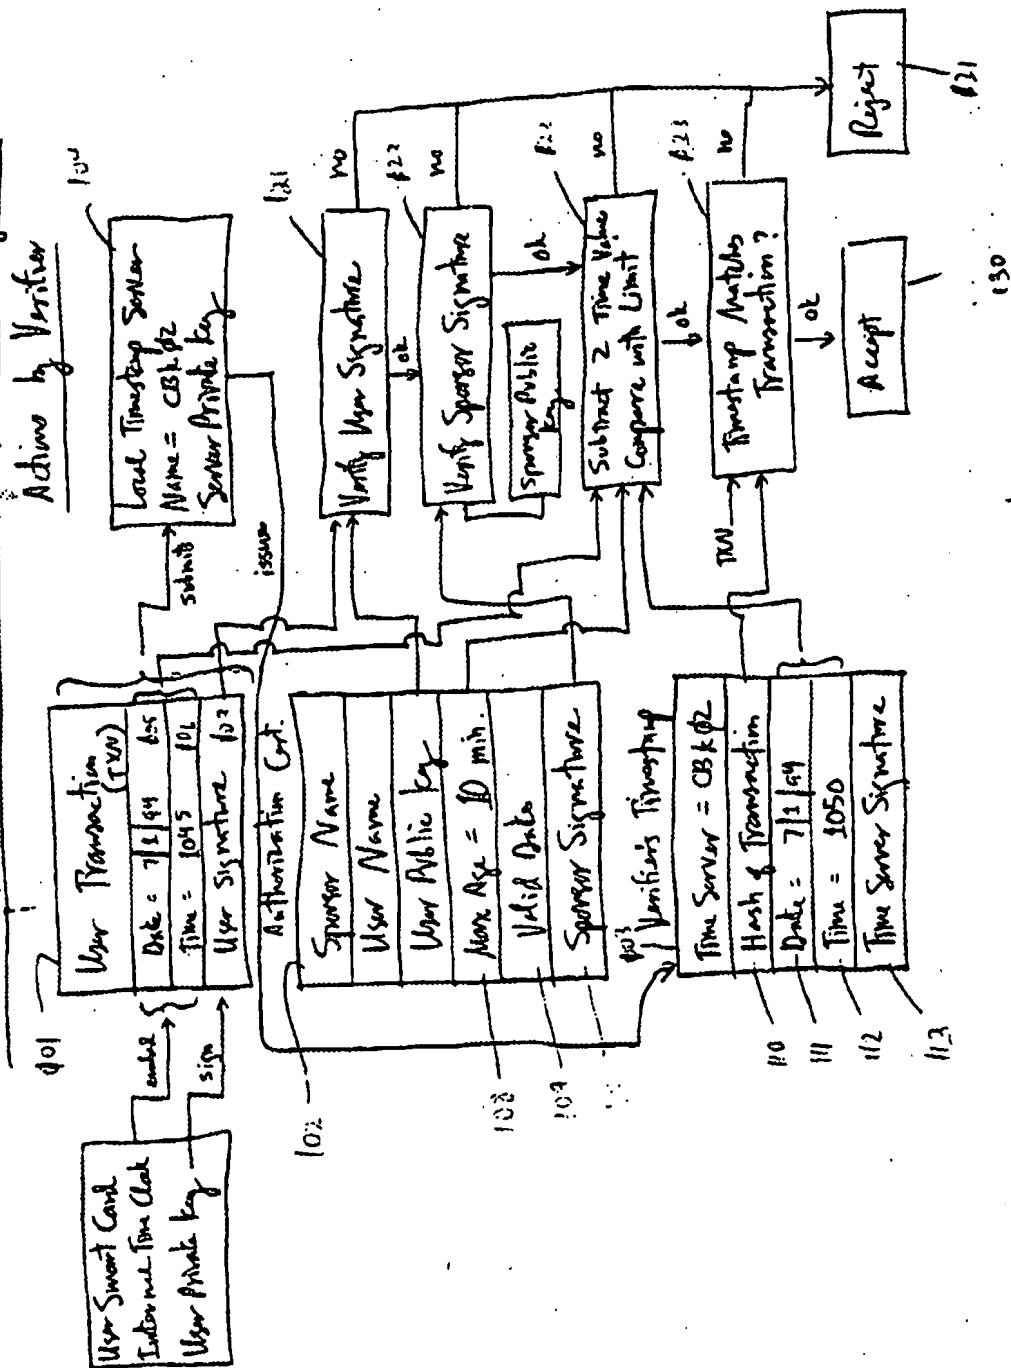 Action by Verifier
User Smart Card
Internal Time Clock
User Private Key
embed
sign
101
User Transaction
(TXN)
Date = 7/1/94
Time = 1045
User Signature
submit
Local Timestamp Server
Name = CBkφ2
Server Private Key
issue
102
Authorization Cert.
Sponsor Name
User Name
User Public Key
Max Age = 10 min.
Valid Dates
Sponsor Signature
108
109
Verifier's Timestamp
Time Server = CBkφ2
Hash of Transaction
Date = 7/1/94
Time = 1050
Time Server Signature
110
111
112
113
121
Verify User Signature
no
ok
φ22
Verify Sponsor Signature
no
ok
Sponsor Public
Key
φ22
Subtract 2 Time Value
Compare with Limit
no
ok
φ23
TXN
Timestamp Matches
Transaction?
no
ok
Accept
130
Reject
φ21